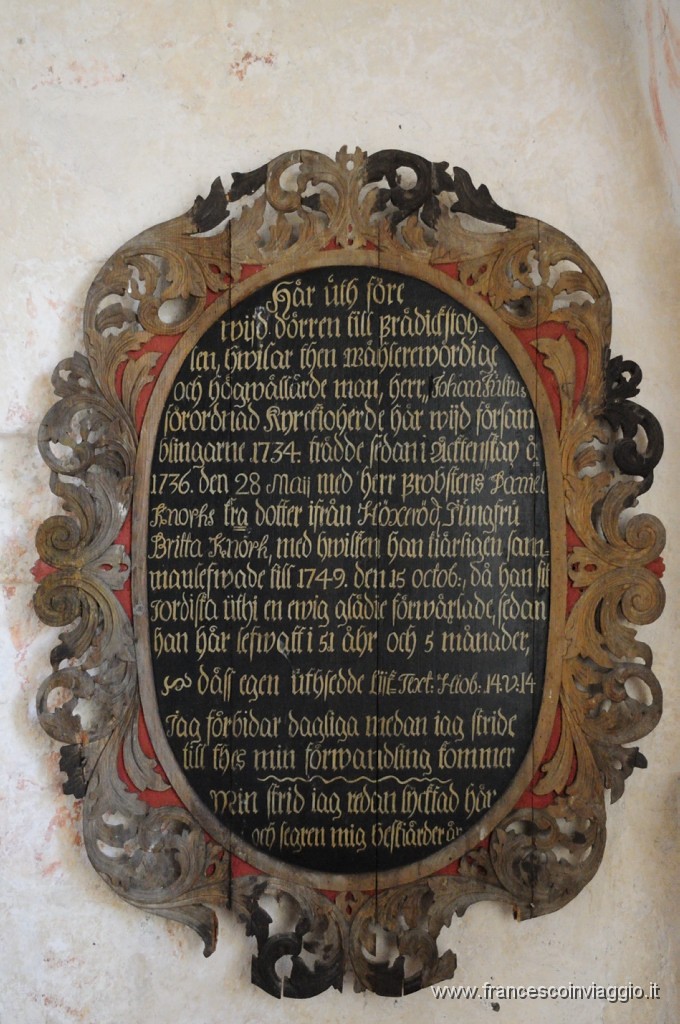 Hår úth före
wijd dörren till Prådickstoh-
len, hwilar then Wåhlerewördige
och högwållärde man, herr, Johan Julius
förordnad Kyrckioherde hår wijd försam
blingarne 1734. trådde sedan i Ächtenskap å
1736. den 28 Maij med herr Probstens Daniel
Knophs dotter ifrån Höxeröd, Jungfrü
Britta Knoph, med hwilken han kiärligen sam-
manlefwade till 1749. den 15 octob:, då han sit
Jordiska úthi en ewig glädie förwåxlade, sedan
han hår lefwatt i 51 åhr och 5 månader,
dåss egen úthsedde Liik Text: Hiob: 14.V:14
Jag förbidar dagliga medan iag stride
till thes min förwandling kommer
Min strid iag redan lycktad hår
och segren mig beskiårder år
www.francescoinviaggio.it